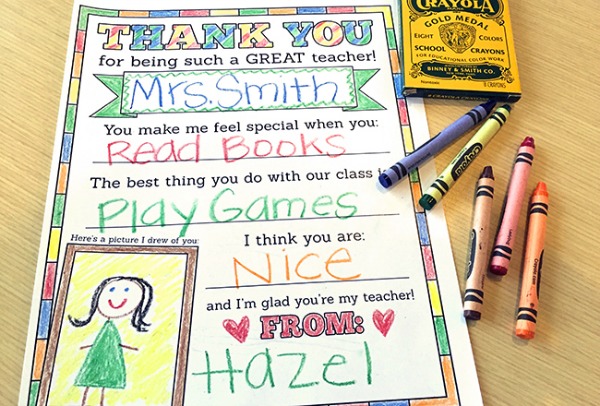 THANK YOU
for being such a GREAT teacher!
Mrs. Smith
You make me feel special when you:
Read Books
The best thing you do with our class
Play Games
Here's a picture I drew of you
I think you are:
Nice
and I'm glad you're my teacher!
FROM:
Hazel
CRAYOLA
GOLD MEDAL
EIGHT COLORS
SCHOOL CRAYONS
FOR EDUCATIONAL COLOR WORK
BINNEY & SMITH CO.